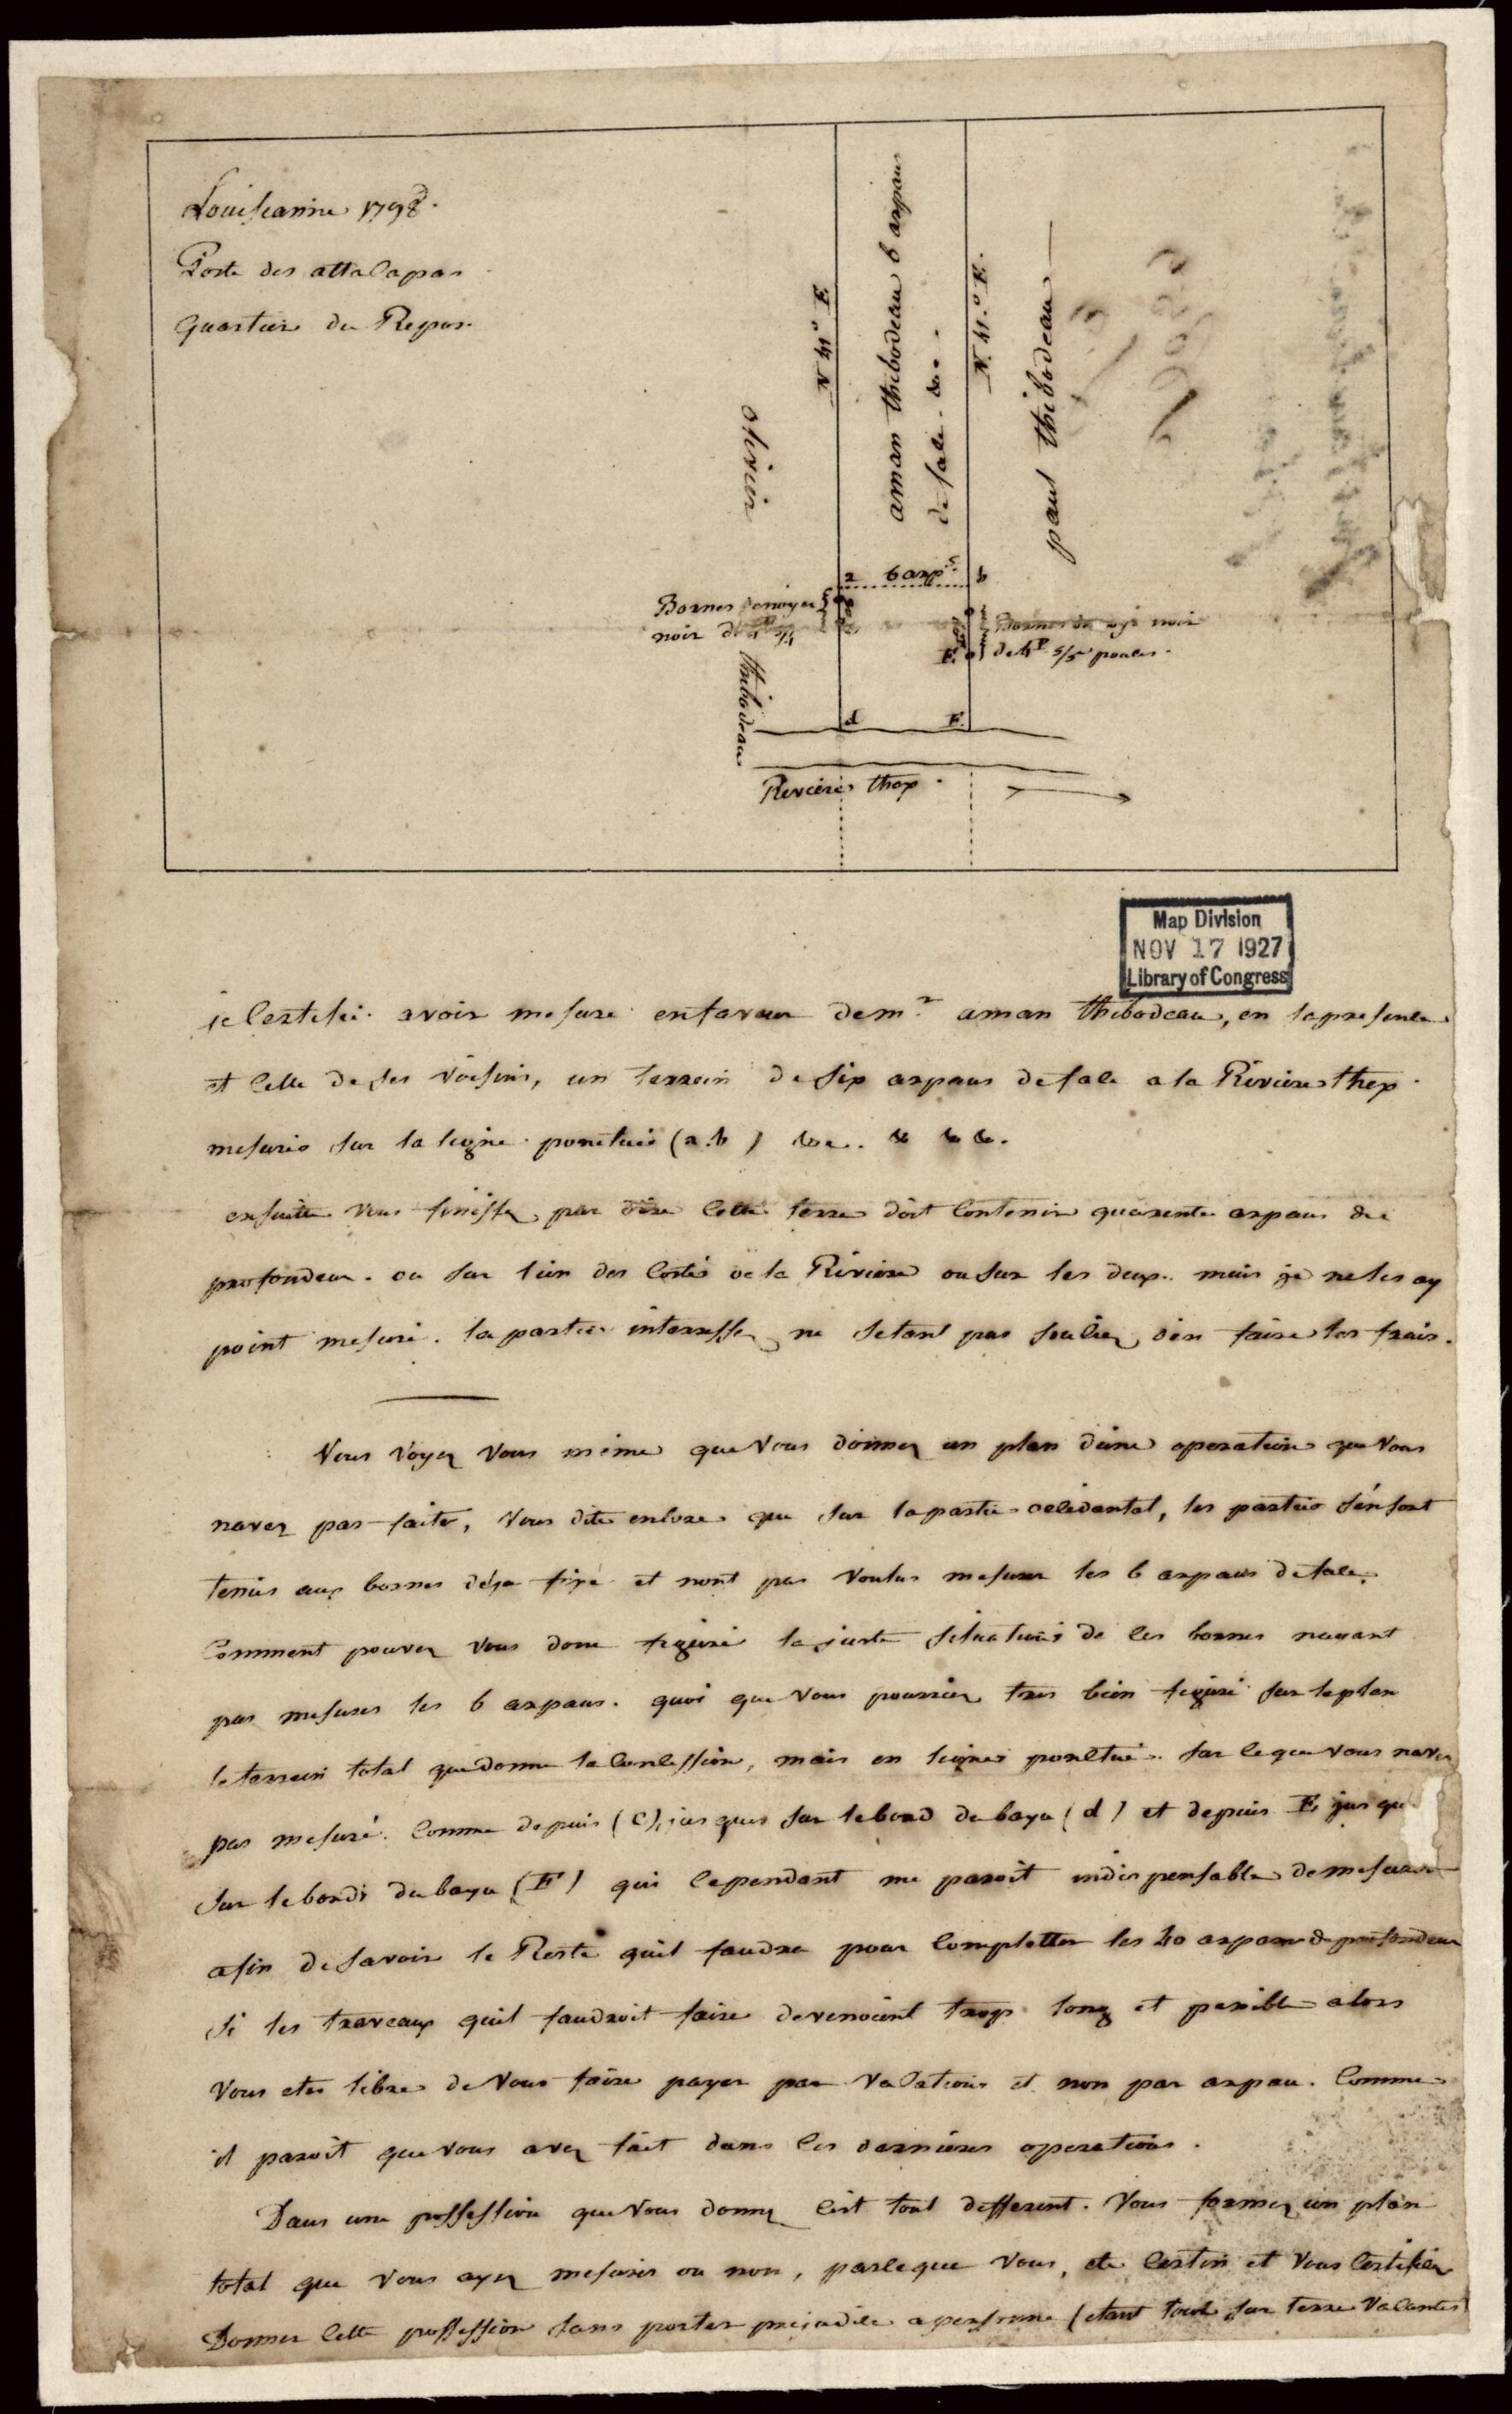 Louiseanne 1798.
Poste des attacapas
Quartier du Repos.
olivier
thibodeau
N 41° E
aman thibodeau 6 arpans
de face. &c.
N. 41.° E.
paul thibodeau
a 6 arp.s b
Bornes de noyer
noir de
Bornes de noir
de 4 P 5/5 pouces.
E.
d F.
Riviere thex.
Map Division
NOV 17 1927
Library of Congress
je Certifié avoir mesuré enfaveur de mr aman thibodeau, en sa presence
et celle de ses voisins, un terrein de six arpans deface a la Riviere thex.
mesurés sur la ligne ponctuée (a.b) &c. & & &.
ensuitte vous finissez par dire cette terre doit contenir quarente arpans de
profondeur. ou sur l'un des costés de la Riviere ou sur les deux. mais je ne les ay
point mesuré. la partie interressez ne setant pas souliez d'en faire les frais.
Vous voyez vous même que vous donnez un plan d'une operation que vous
navez pas faite, vous dite encore que sur la partie occidantal, les parties s'en sont
tenus aux bornes déja fixé et nont pas voulus mesurer les 6 arpans deface.
Comment pouvez vous donc figuré la juste situation de ces bornes nayant
pas mesurés les 6 arpans. quoi que vous pourriez tres bien figuré sur le plan
le terrein total que donne la Concession, mais en lignes ponctué. sur ce que vous navez
pas mesuré. Comme depuis (C) jusques sur le bord du bayu (d) et depuis E jusque
sur le bords du bayu (F) qui cependant me paroit indispensable de mesurer
afin de savoir le Reste quil faudra pour completter les 40 arpans de profondeur
si les traveaux quil faudroit faire devenoient trop long et penible alors
vous etes libre de vous faire payer par vacations et non par arpan. Comme
il paroit que vous avez fait dans les dernieres operations.
Dans une possession que vous donnez c'est tout different. Vous formez un plan
total que vous ayez mesurés ou non, parceque vous, ete Certin et vous Certifiez
Donner cette possession sans porter prejudice a personne (etant tout sur terre vacantes